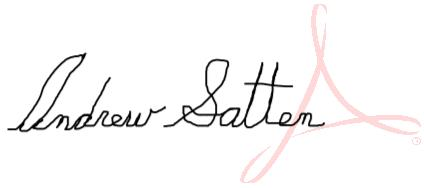 Andrew Satten